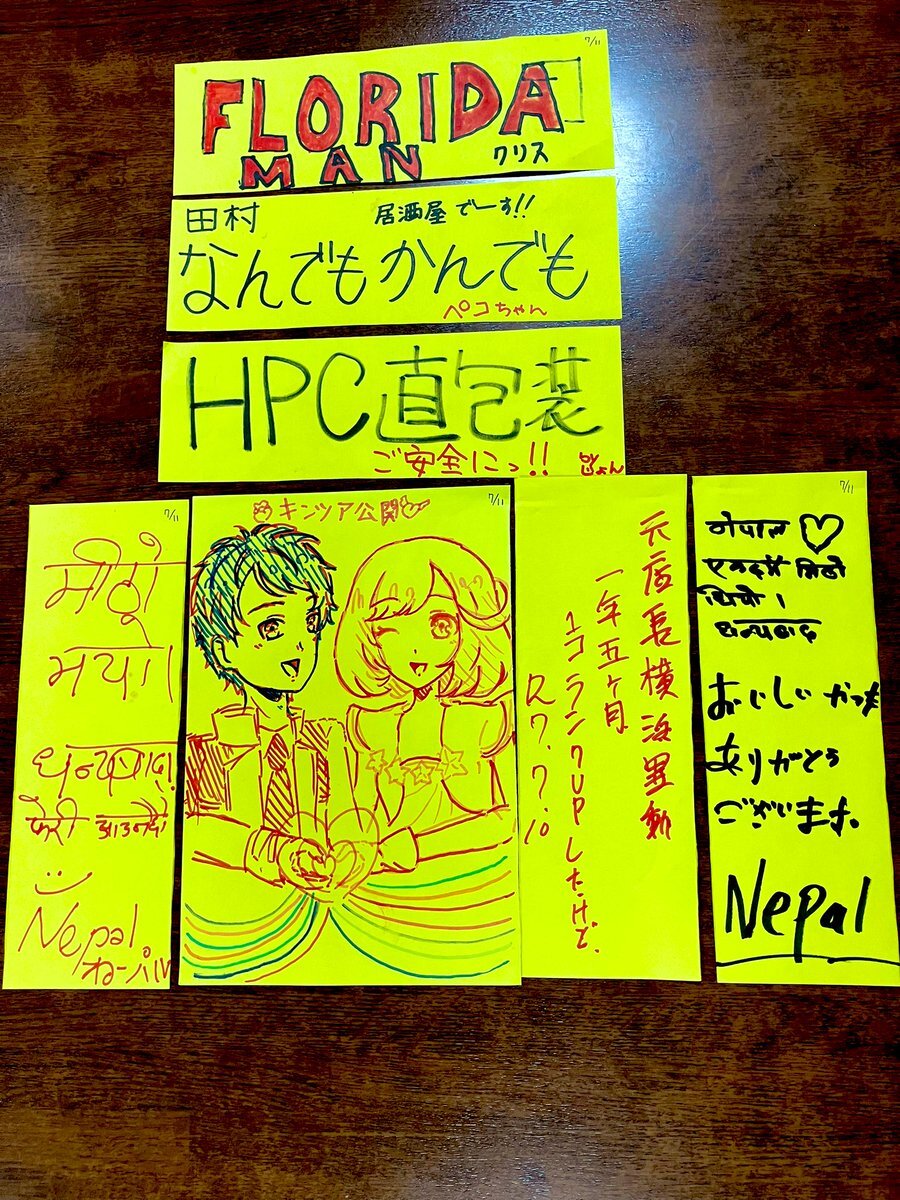 7/11
FLORIDA
MAN クリス
田村 居酒屋でーす!!
なんでもかんでも
ペコちゃん
HPC直包装
ご安全にっ!!
7/11
मीठो
भयो।
धन्यवाद!
फेरी
Nepal
ねーパル
キンツア公開
7/11
元店長横浜異動
一年五ヶ月
1コランクUPしたけど、
R7.7.10
7/11
नेपाल ♡
एकदम मिठो
थियो।
धन्यवाद
おいしいかった
ありがとう
ございます。
Nepal